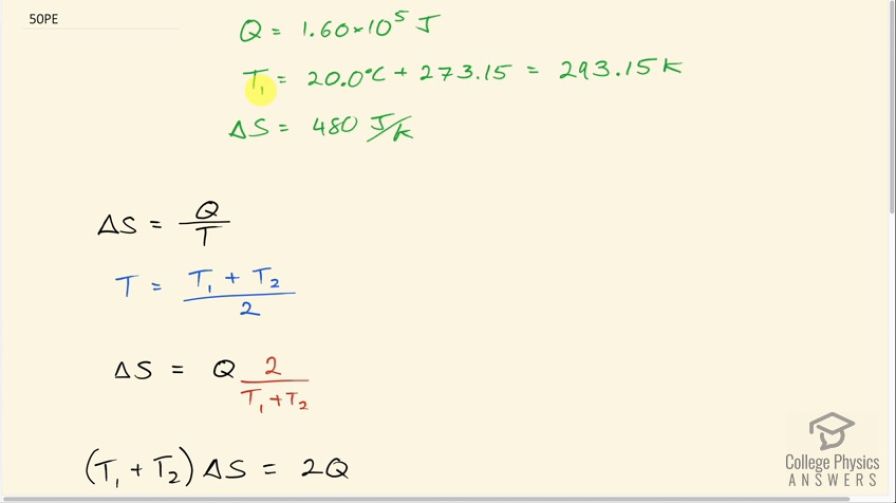 50PE
Q = 1.60×10⁵ J
T₁ = 20.0°C + 273.15 = 293.15 K
ΔS = 480 J/K
ΔS = Q/T
T = (T₁ + T₂)/2
ΔS = Q 2/(T₁+T₂)
(T₁ + T₂) ΔS = 2Q
College Physics
ANSWERS